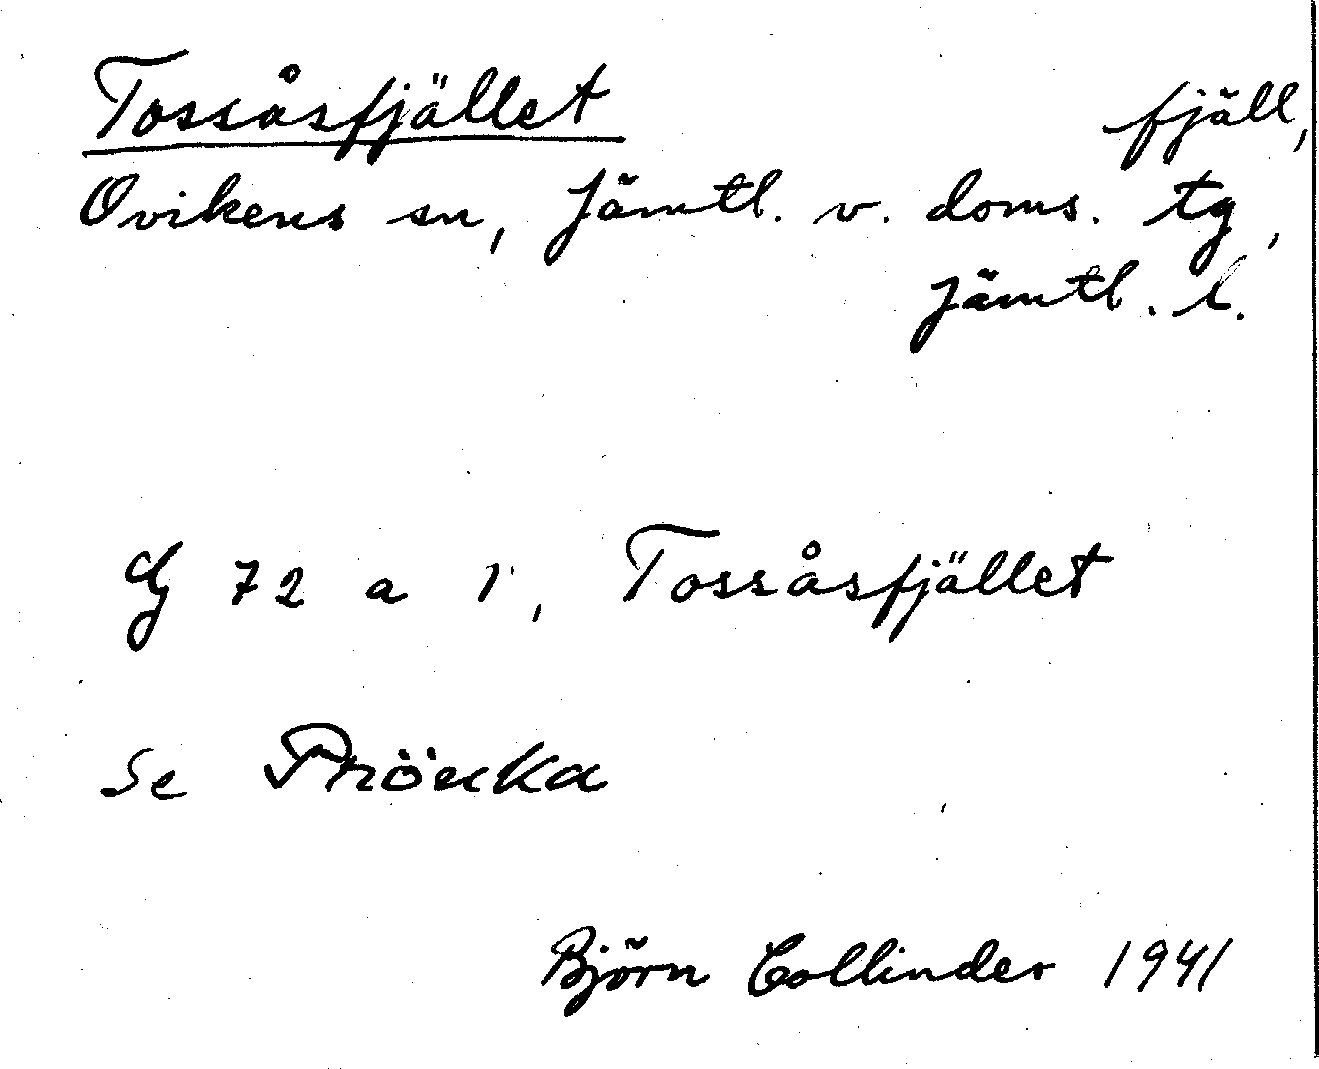 Tossåsfjället fjäll,
Ovikens sn, Jämtl. v. doms. tg,
Jämtl. l.
G 72 a 1, Tossåsfjället
Se
Björn Collinder 1941